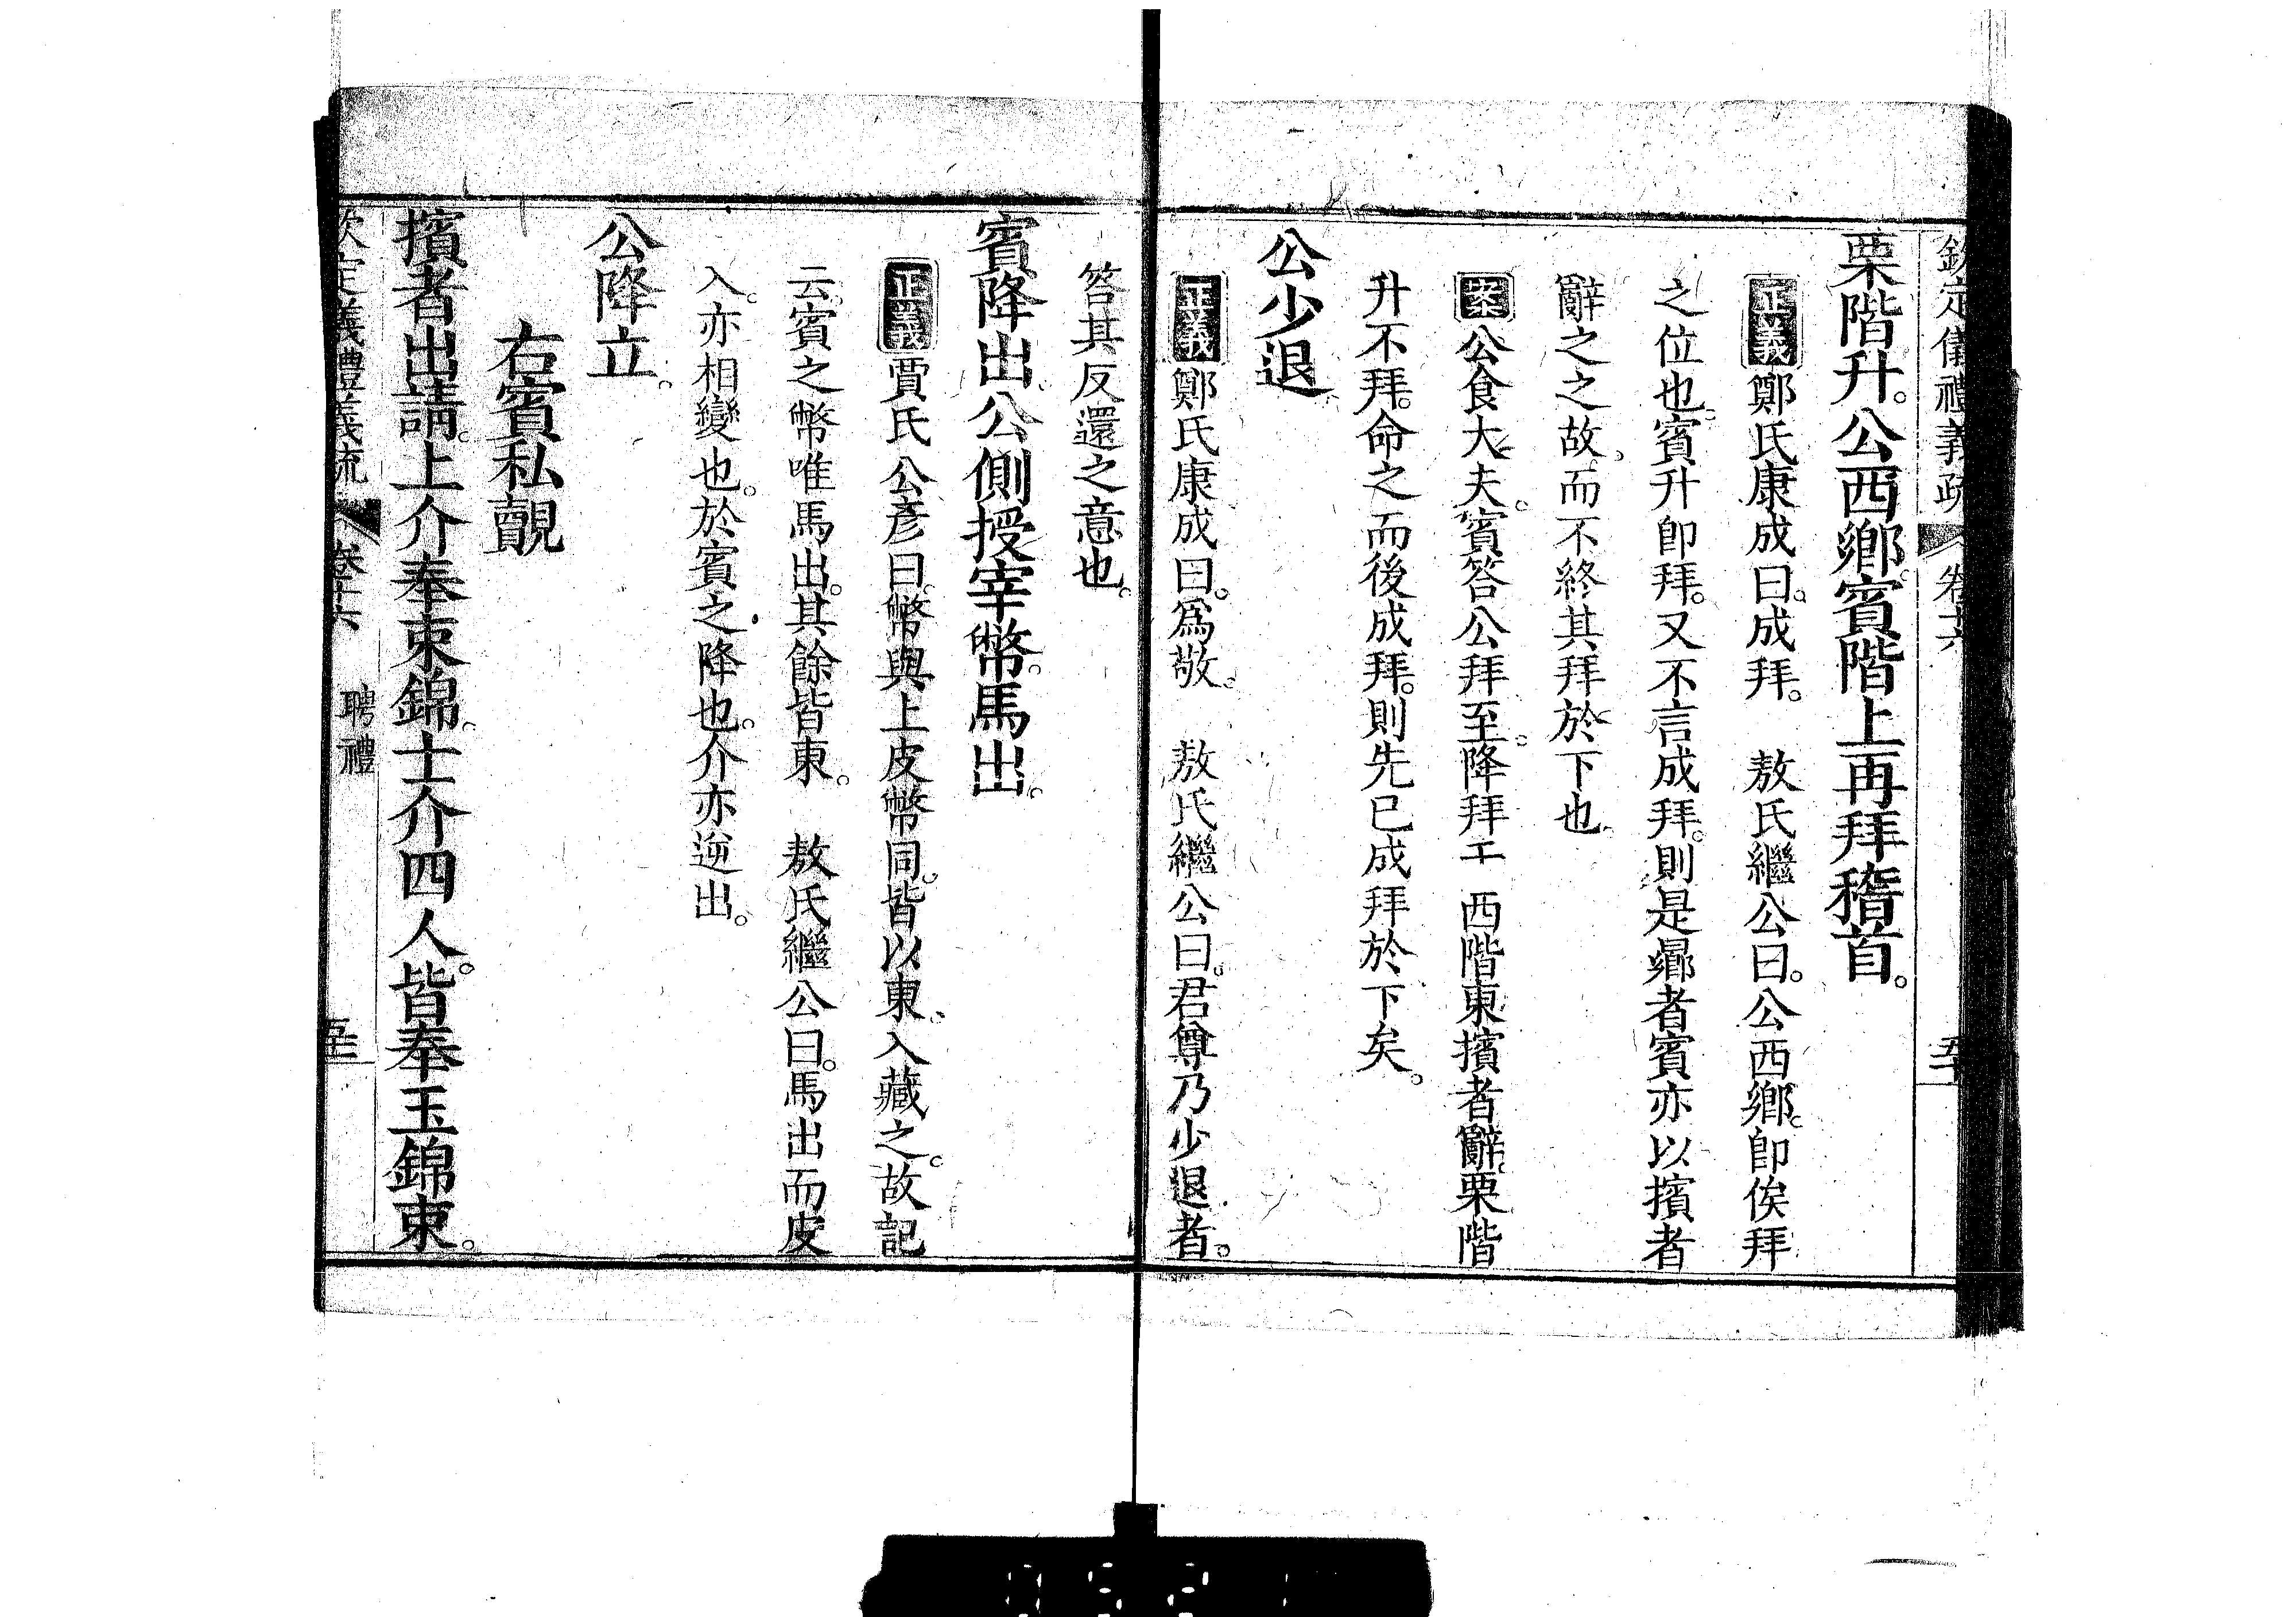 欽定儀禮義疏 卷十六
栗階升。公西鄉。賓階上再拜稽首。
正義鄭氏康成曰。成拜。 敖氏繼公曰。公西鄉。卽俟拜
之位也。賓升卽拜。又不言成拜。則是曏者賓亦以擯者
辭之之故。而不終其拜於下也。
案公食大夫。賓答公拜至。降拜 西階東擯者辭。栗階
升不拜。命之而後成拜。則先已成拜於下矣。
公少退
正義鄭氏康成曰。爲敬。 敖氏繼公曰。君尊乃少退者。
答其反還之意也。
賓降出。公側授宰幣。馬出。
正義賈氏公彥曰。幣與上皮幣同。皆以東。入藏之。故記
云。賓之幣唯馬出。其餘皆東。 敖氏繼公曰。馬出而皮
入。亦相變也。於賓之降也。介亦逆出。
公降立。
右賓私覿
擯者出請。上介奉束錦。士介四人。皆奉玉錦束。
欽定儀禮義疏 卷十六 聘禮